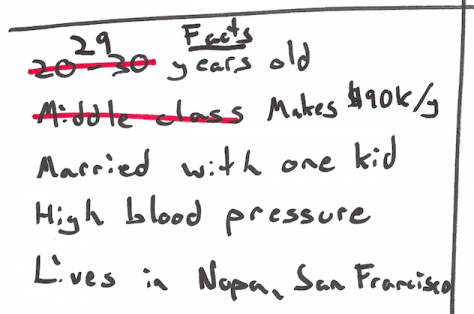 Facts
29
20-30 years old
Middle class Makes $90k/y
Married with one kid
High blood pressure
Lives in Napa, San Francisco